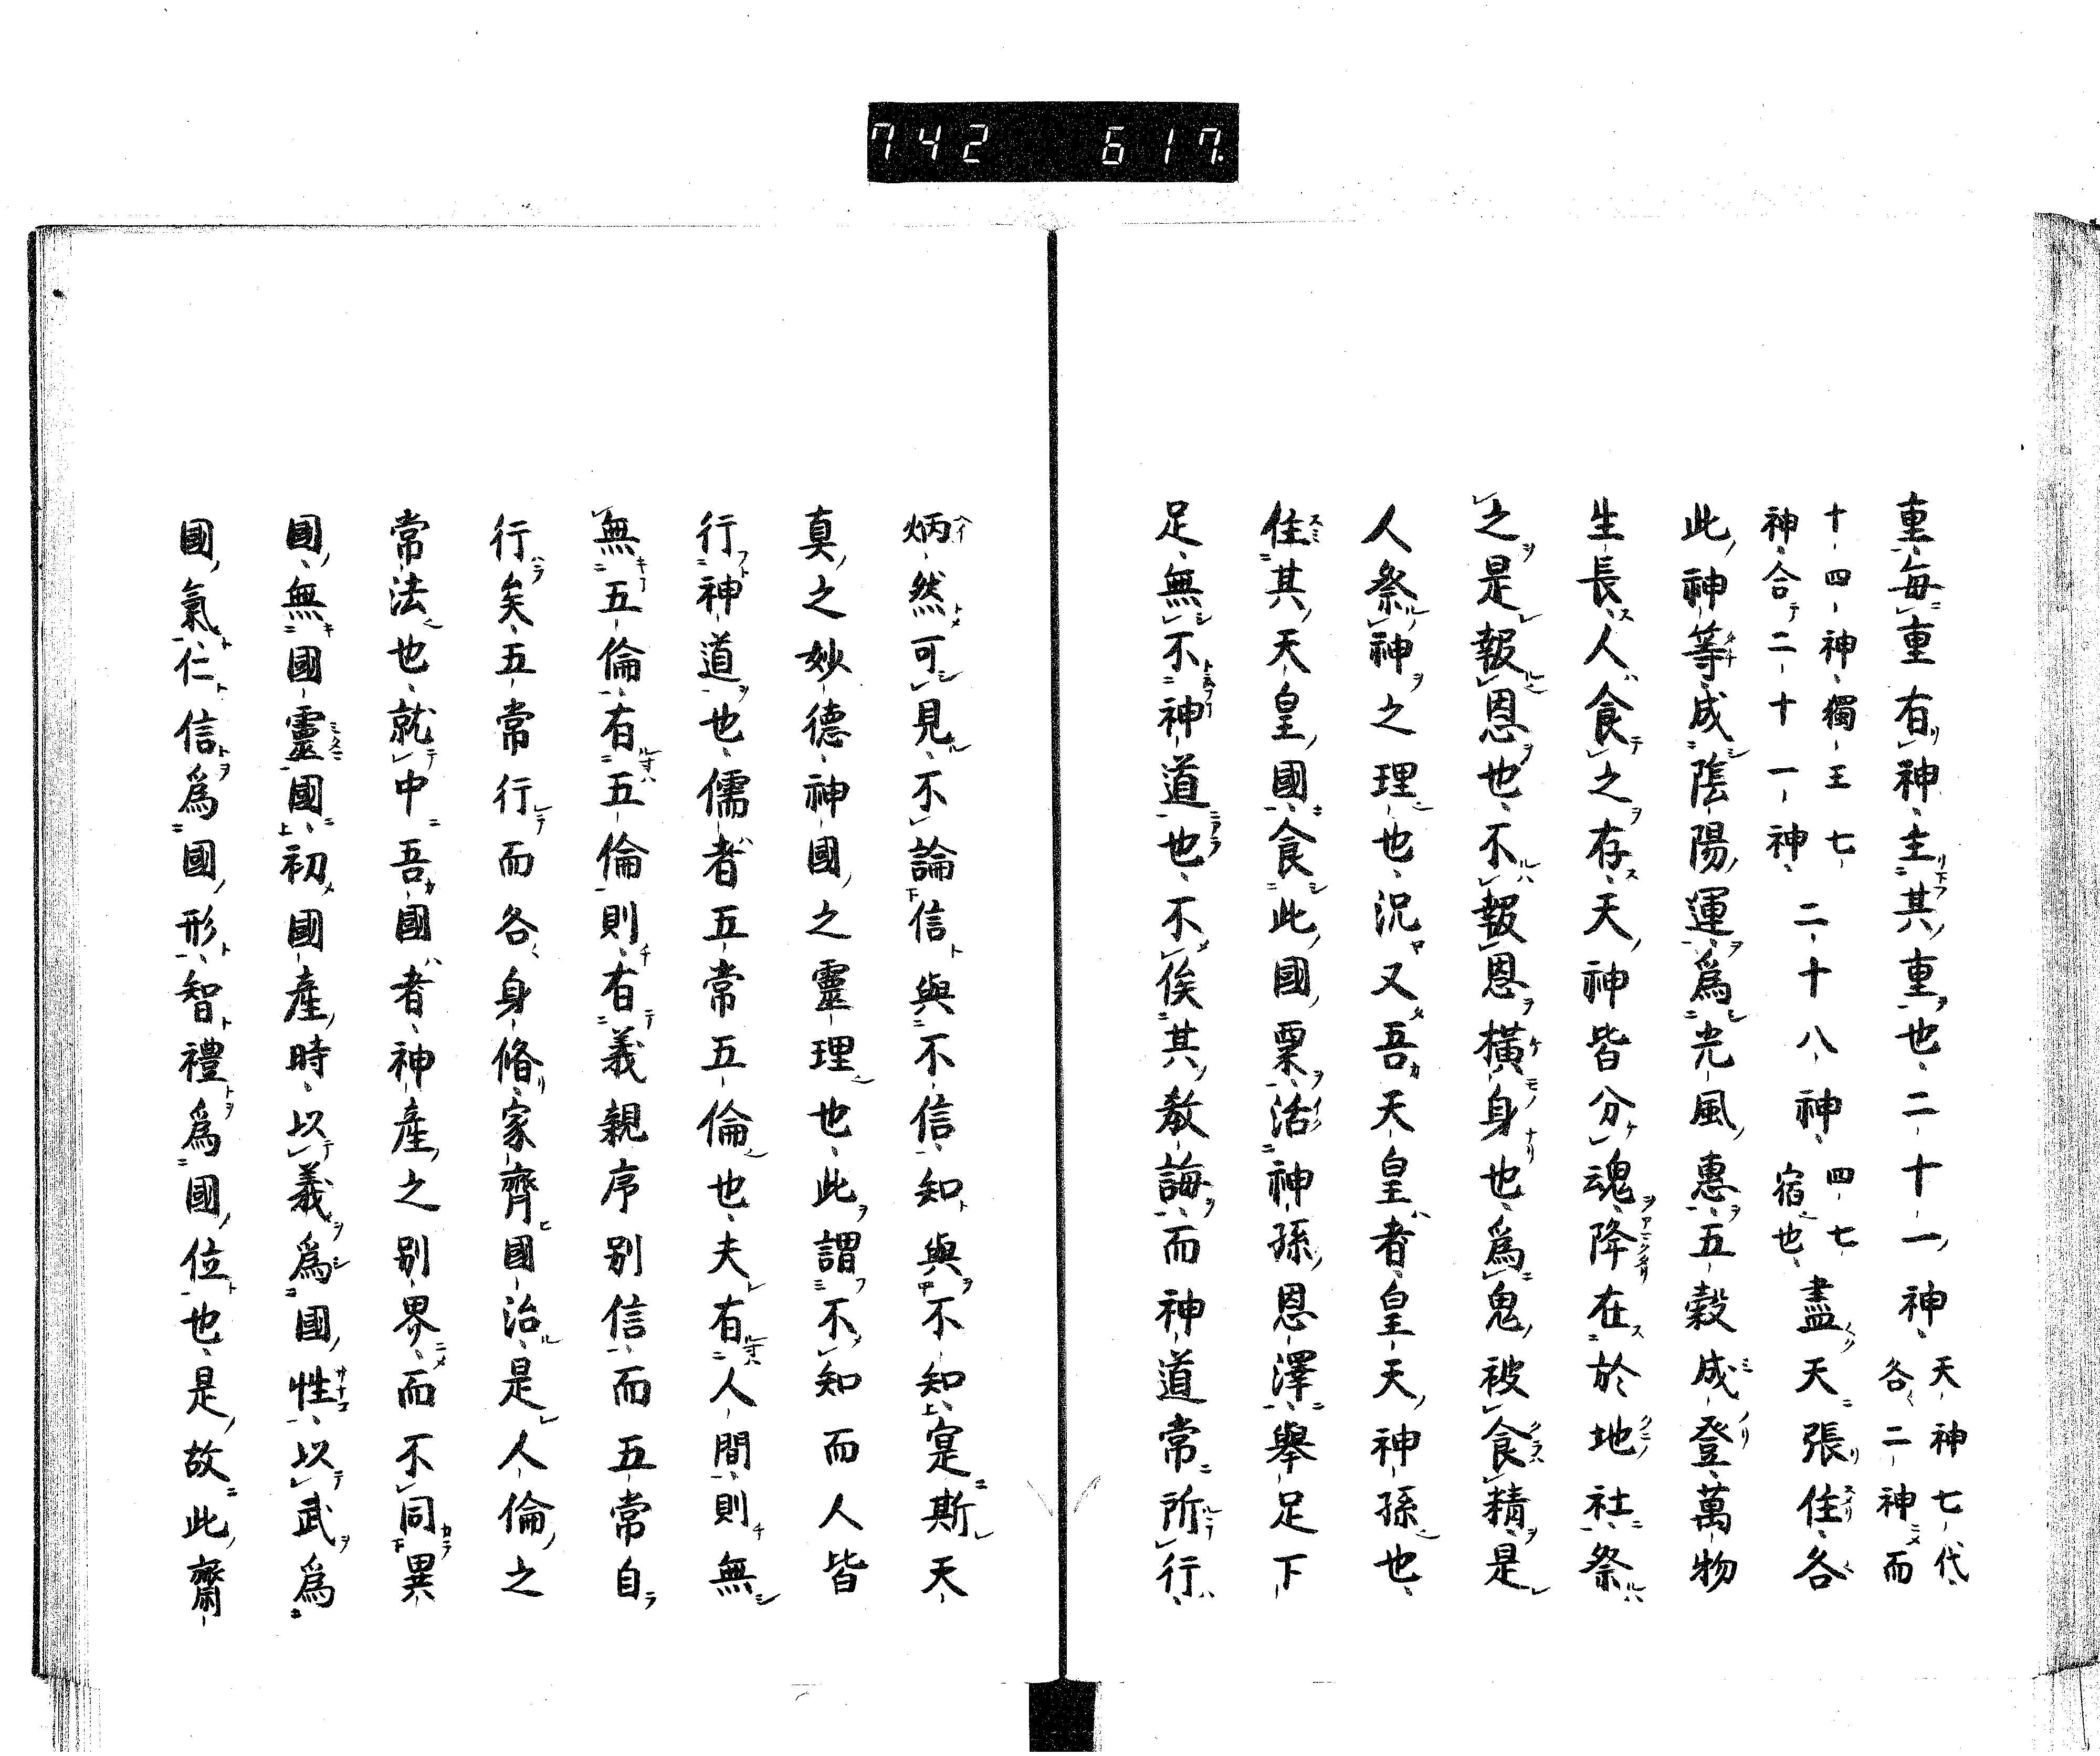 742 617.
重每重有神主其重也二十一神天神七代各二神而
十四神獨王七神合二十一神二十八神四七宿也盡天張住各
此神等成陰陽運爲光風惠五穀成登萬物
生長人食之存天神皆分魂降在於地社祭
之是報恩也不報恩橫身也爲鬼被食精是
人祭神之理也況又吾天皇者皇天神孫也
住其天皇國食此國粟活神孫恩澤舉足下
足無不神道也不俟其教誨而神道常所行
炳然可見不論信與不信知與不知寔斯天
真之妙德神國之靈理也此謂不知而人皆
行神道也儒者五常五倫也夫有人間則無
無五倫有五倫則有義親序別信而五常自
行矣五常行而各身脩家齊國治是人倫之
常法也就中吾國者神產之別界而不同異
國無國靈國初國產時以義爲國性以武爲
國氣仁信爲國形智禮爲國位也是故此齋